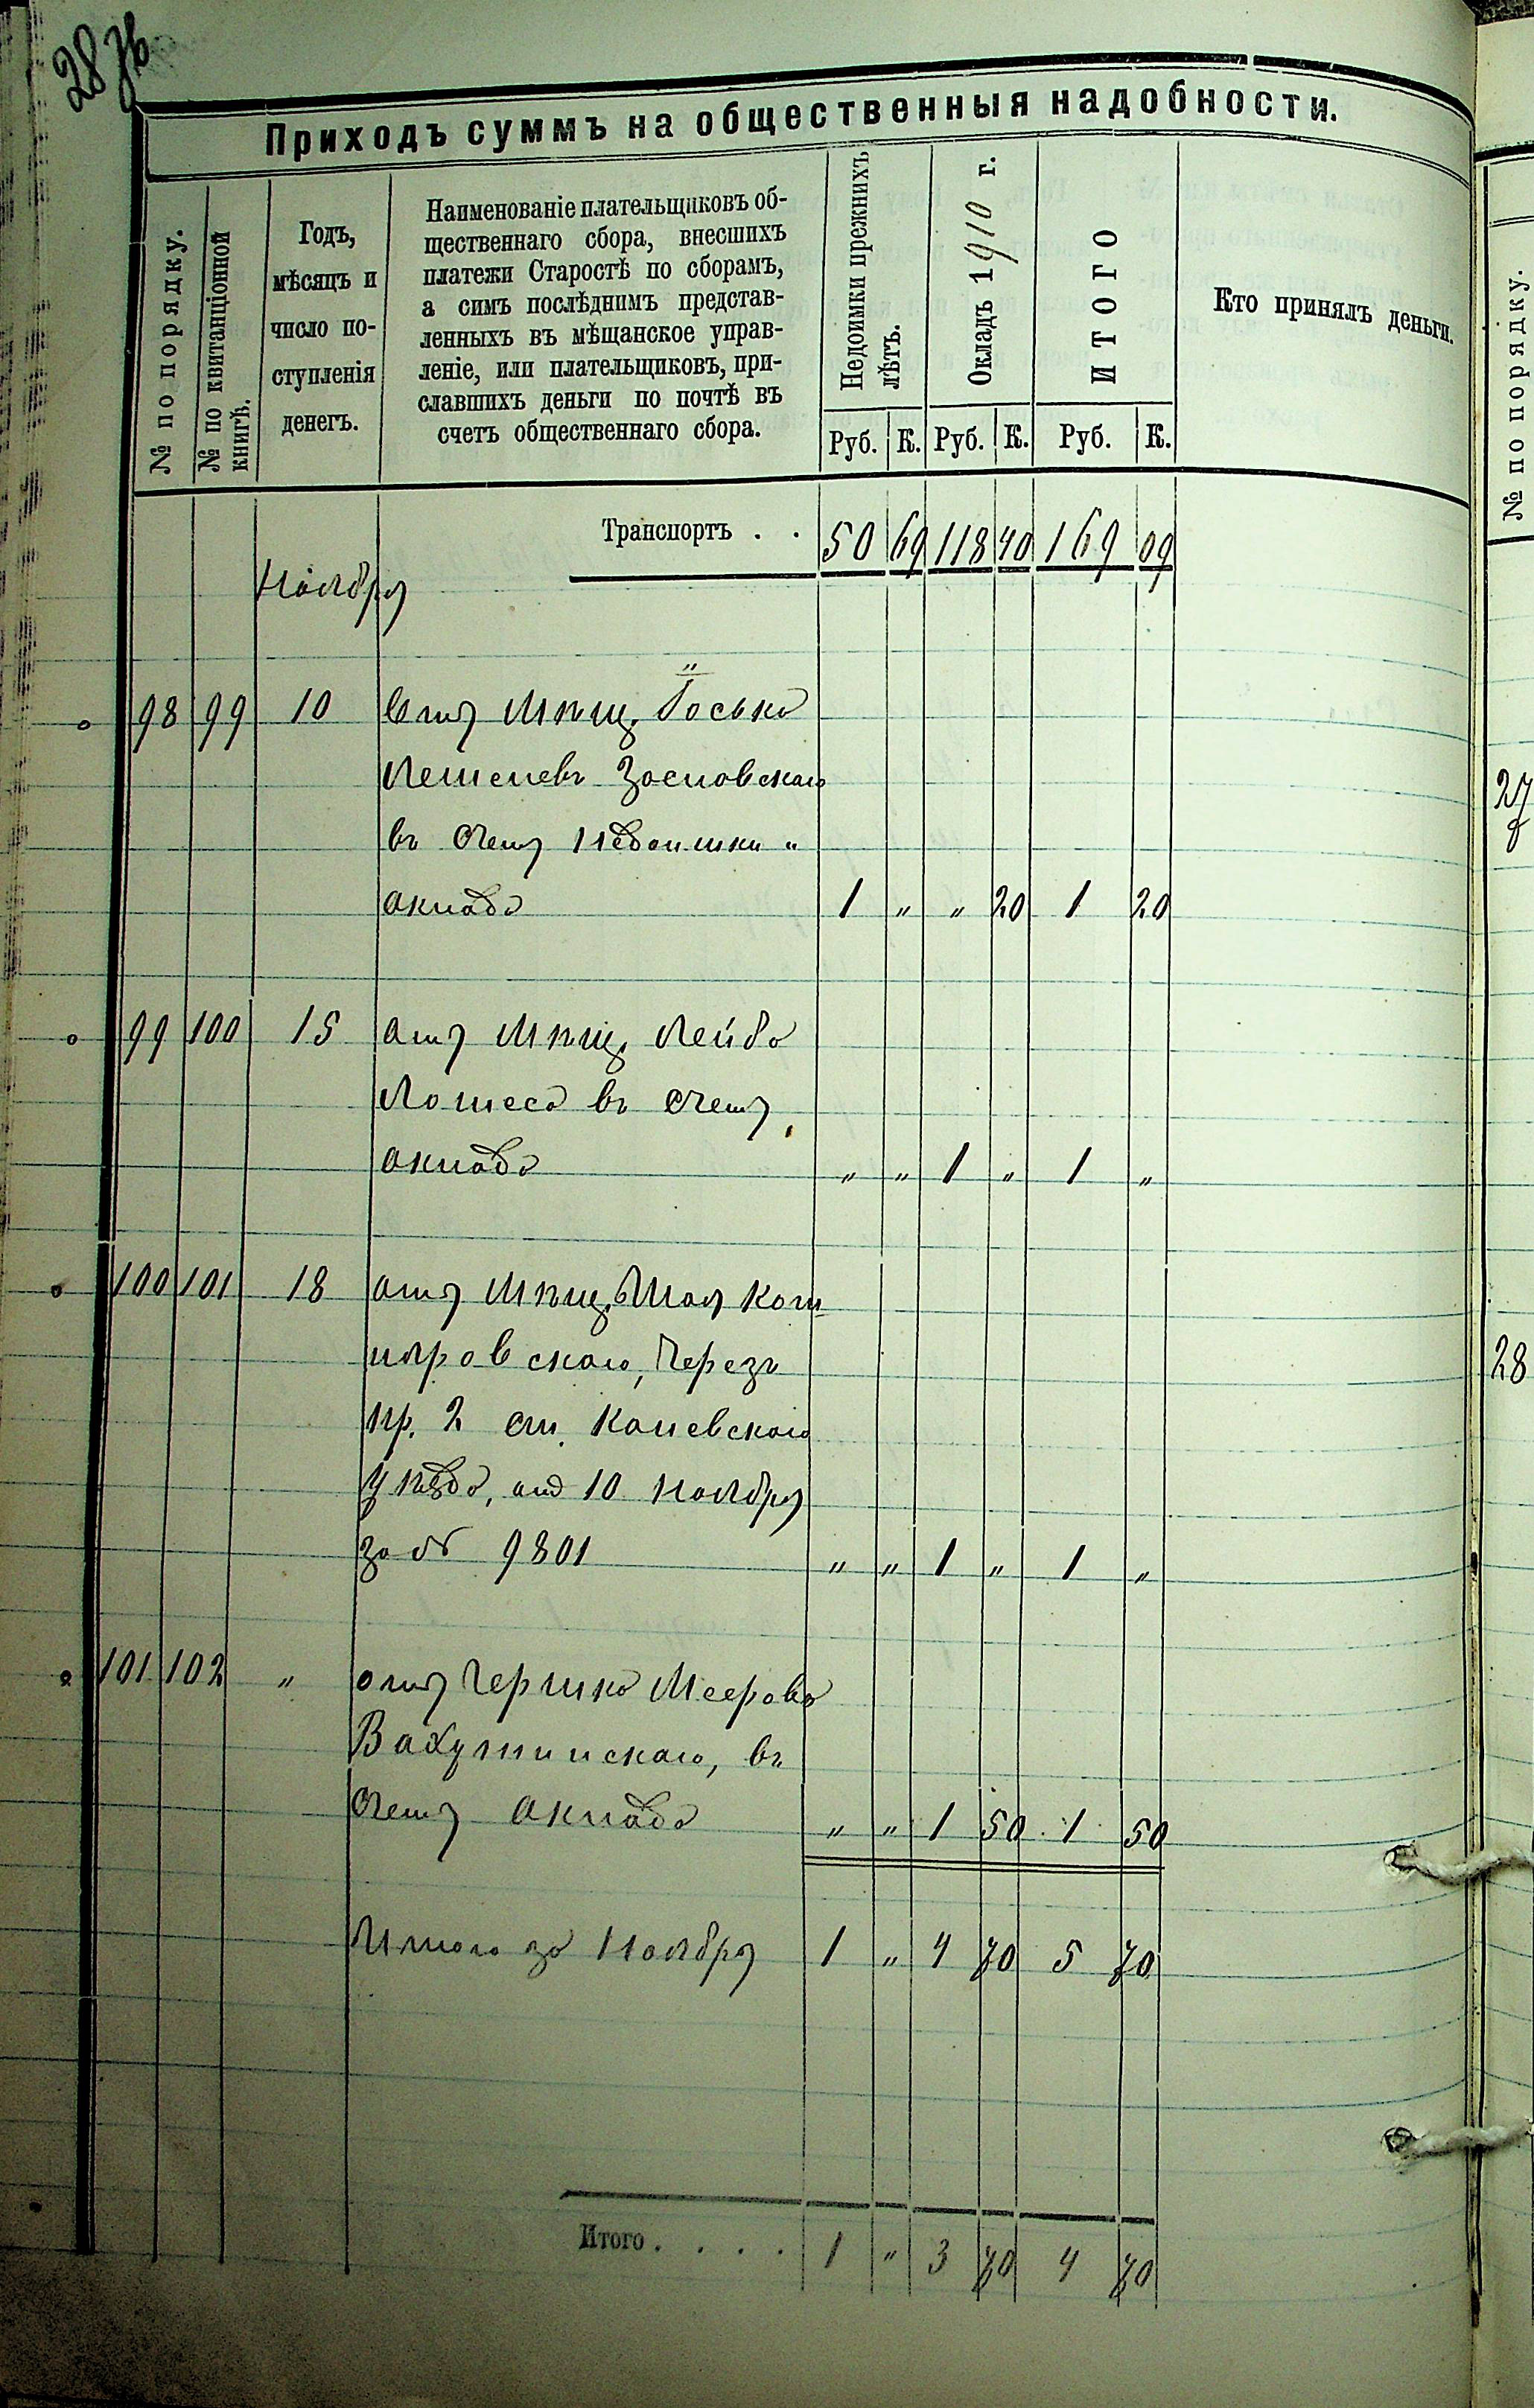 28 зв.
Приходъ суммъ на общественныя надобности.
№ по порядку.
№ по квитанціонной книгѣ.
Годъ,
мѣсяцъ и
число по-
ступленія
денегъ.
Наименованіе плательщиковъ об-
щественнаго сбора, внесшихъ
платежи Старостѣ по сборамъ,
а симъ послѣднимъ представ-
ленныхъ въ мѣщанское управ-
леніе, или плательщиковъ, при-
славшихъ деньги по почтѣ въ
счетъ общественнаго сбора.
Недоимки прежнихъ лѣтъ.
Окладъ 1910 г.
ИТОГО
Кто принялъ деньги.
Руб. К. Руб. К. Руб. К.
Транспортъ . . 50 69 118 40 169 09
Ноября
98 99 10 Отъ Мѣщ. Іоська
Заславскаго
въ счетъ недоимки "
оклада 1 " " 20 1 20
99 100 15 отъ Мѣщ. Лейба
въ счетъ
оклада " " 1 " 1 "
100 101 18 отъ Мѣщ.
черезъ
пр. 2 ст. Каневскаго
уѣзда, отъ 10 Ноября
за № 9801 " " 1 " 1 "
101 102 " отъ Гершка Меерова
въ
счетъ оклада " " 1 50 1 50
Итого за Ноябрь 1 " 4 70 5 70
Итого . . . . 1 " 3 70 4 70
№ по порядку.
27
28